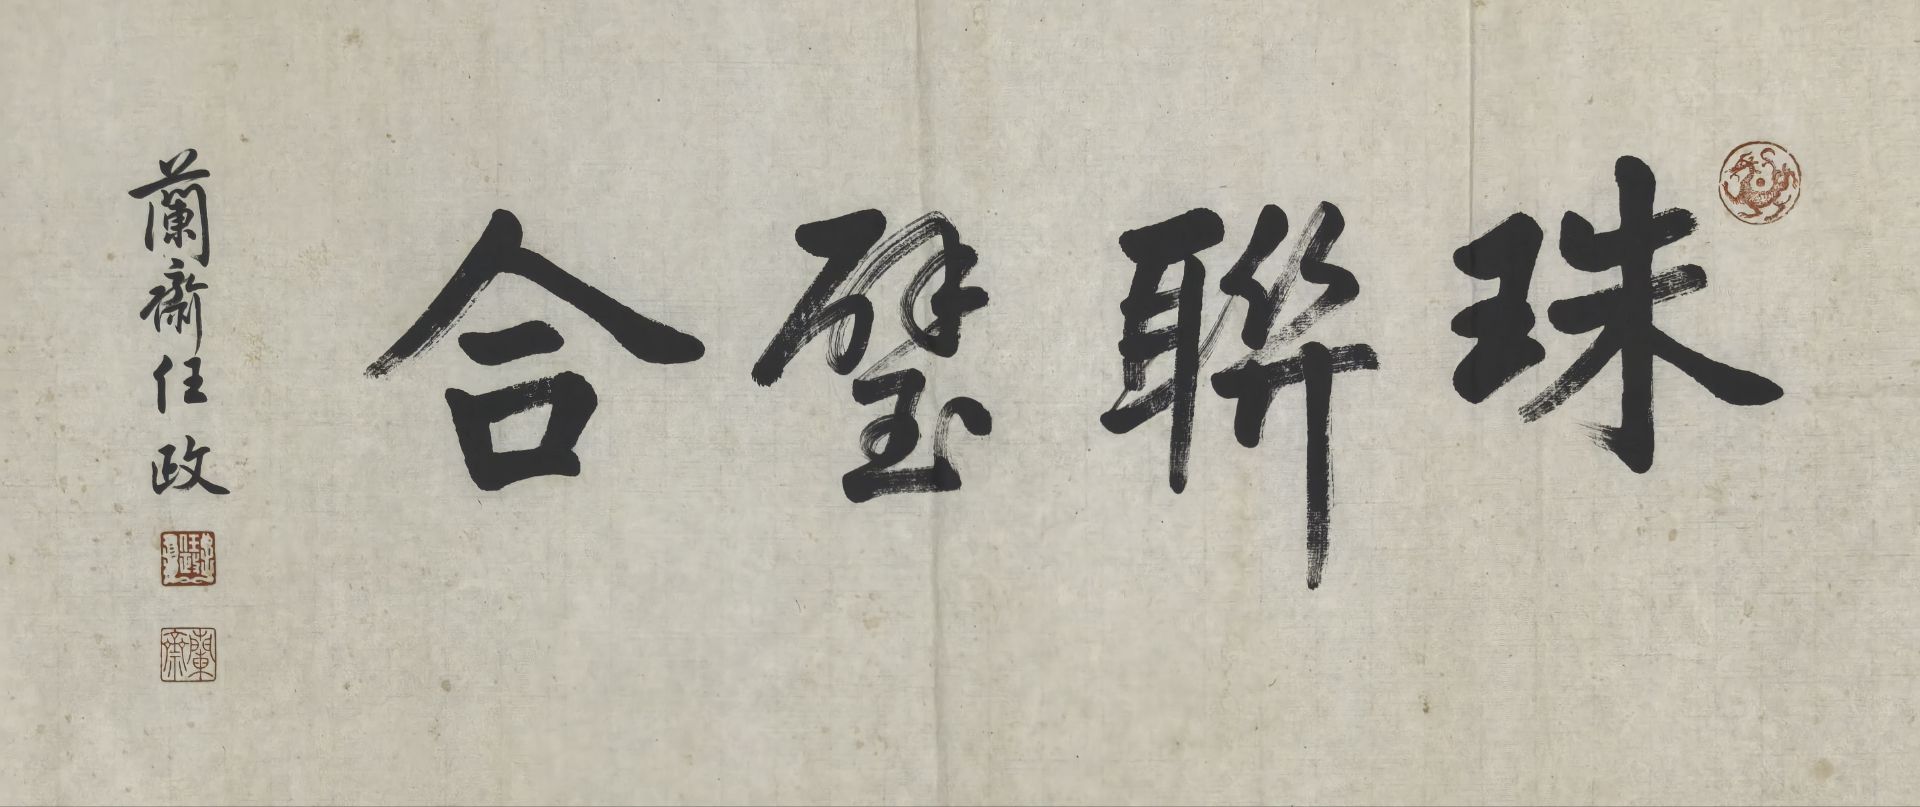 珠聯璧合
蘭齋任政
蘭齋